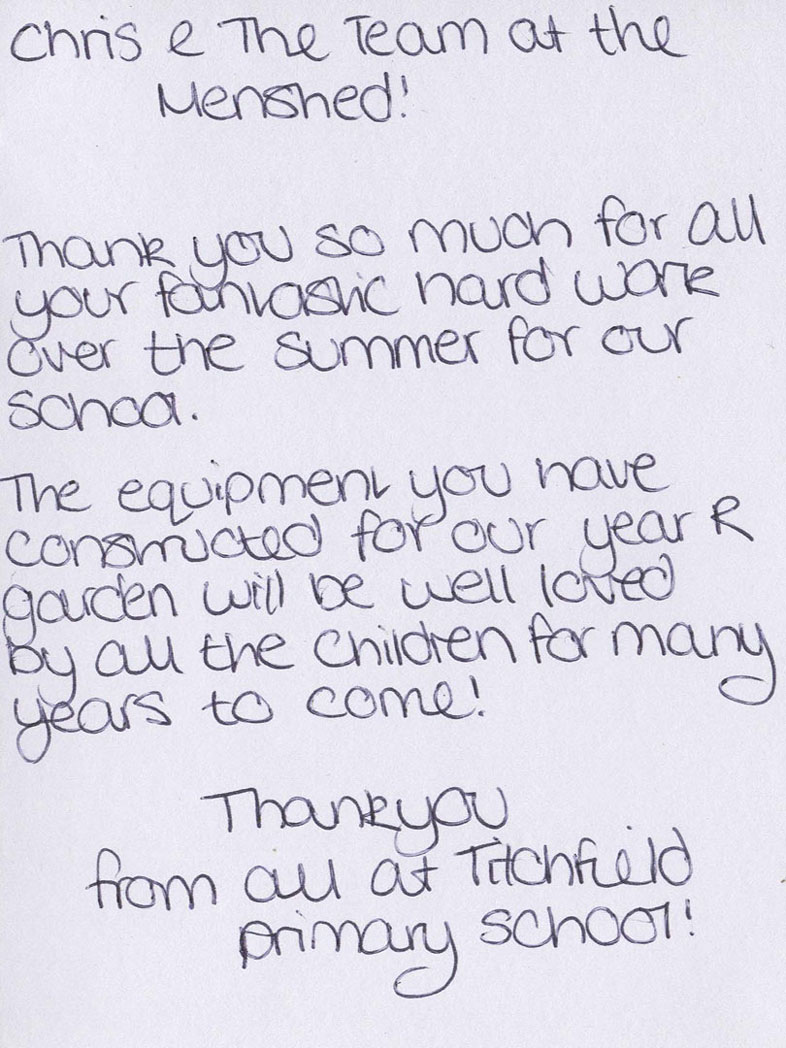 Chris & The Team at the
Menshed!
Thank you so much for all
your fantastic hard work
over the summer for our
school.
The equipment you have
constructed for our year R
garden will be well loved
by all the children for many
years to come!
Thankyou
from all at Titchfield
primary school!